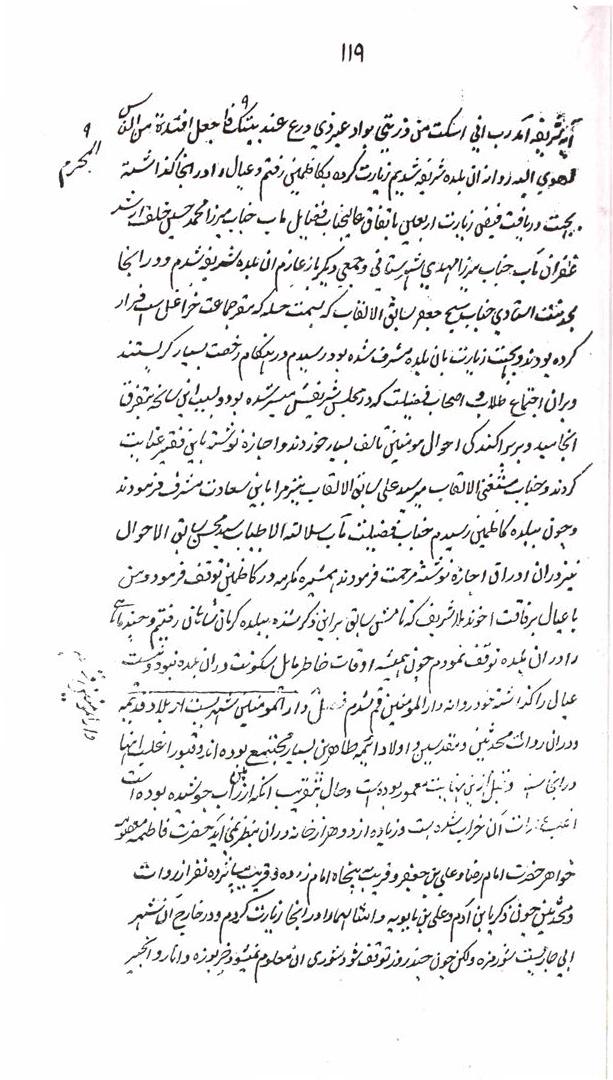 ۱۱۹
آیه شریفه آمد رب انی اسکنت من ذریتی بواد غیر ذی زرع عند بیتک فاجعل افئدة من الناس
تهوی الیه روانه آن بلده شریفه شدیم زیارت کرده بکاظمین رفتم و عیال را در آنجا گذاشته
۹ المحرم
بجهت دریافت فیض زیارت اربعین باتفاق عالیجناب فضایل مآب جناب میرزا محمد حسین خلف ارشد
غفران مآب جناب میرزا مهدی شهرستانی و جمعی دیگر باز عازم آن بلده شریفه شدم و در آنجا
بخدمت استادی جناب شیخ جعفر سابق الالقاب که بسمت حله که مقر جماعت خزاعل است فرار
کرده بودند و بجهت زیارت بآن بلده مشرف شده بود رسیدم در هنگام رخصت بسیار گریستند
و بر آن اجتماع طلاب و اصحاب فضیلت که در مجلس شریفش میسر شده بود و بسبب این سانحه بتفرق
انجامید و بر پراکندگی احوال مومنین تالف بسیار خوردند و اجازه نوشته باین فقیر عنایت
کردند و جناب مستغنی الالقاب میر سید علی سابق الالقاب نیز مرا باین سعادت مشرف فرمودند
و چون ببلده کاظمین رسیدم جناب فضیلت مآب سلالة الاطیاب سید محسن سابق الاحوال
نیز در آن اوراق اجازه نوشته مرحمت فرمودند همشیره مکرمه در کاظمین توقف فرمود و من
با عیال برفاقت آخوند ملا شریف که نامش سابق بر این ذکر شده ببلده کرمانشاهان رفتیم و چند ماهی
را در آن بلده توقف نمودم چون همیشه اوقات خاطر مایل سکونت در آن بلده نبود و نیست
عیال را گذاشته خود روانه دار المومنین قم شدم فصل دار المومنین شهریست از بلاد قدیمه
و در آن روات محدثین و مقدسین و اولاد ائمه طاهرین بسیار مجتمع بوده اند و قبور اغلب اینها
در آنجا است و قبل ازین بغایت معمور بوده است و حال بتقریب آنکه از زمین آب جوشیده بوده است
اغلب عمارات آن خراب شده است و زیاده از دو هزار خانه در آن بنظر نمی آید حضرت فاطمه معصومه
خواهر حضرت امام رضا و علی بن جعفر و قریب به پنجاه امام زاده و قریب بپانزده نفر از روات
و محدثین چون ذکریا بن آدم و علی بن بابویه و امثالهما را در آنجا زیارت کردم و در خارج آن شهر
آبی جاریست شور مزه ولکن چون چند روز توقف شود شوری آن معلوم نمیشود خربوزه و انار و انجیر